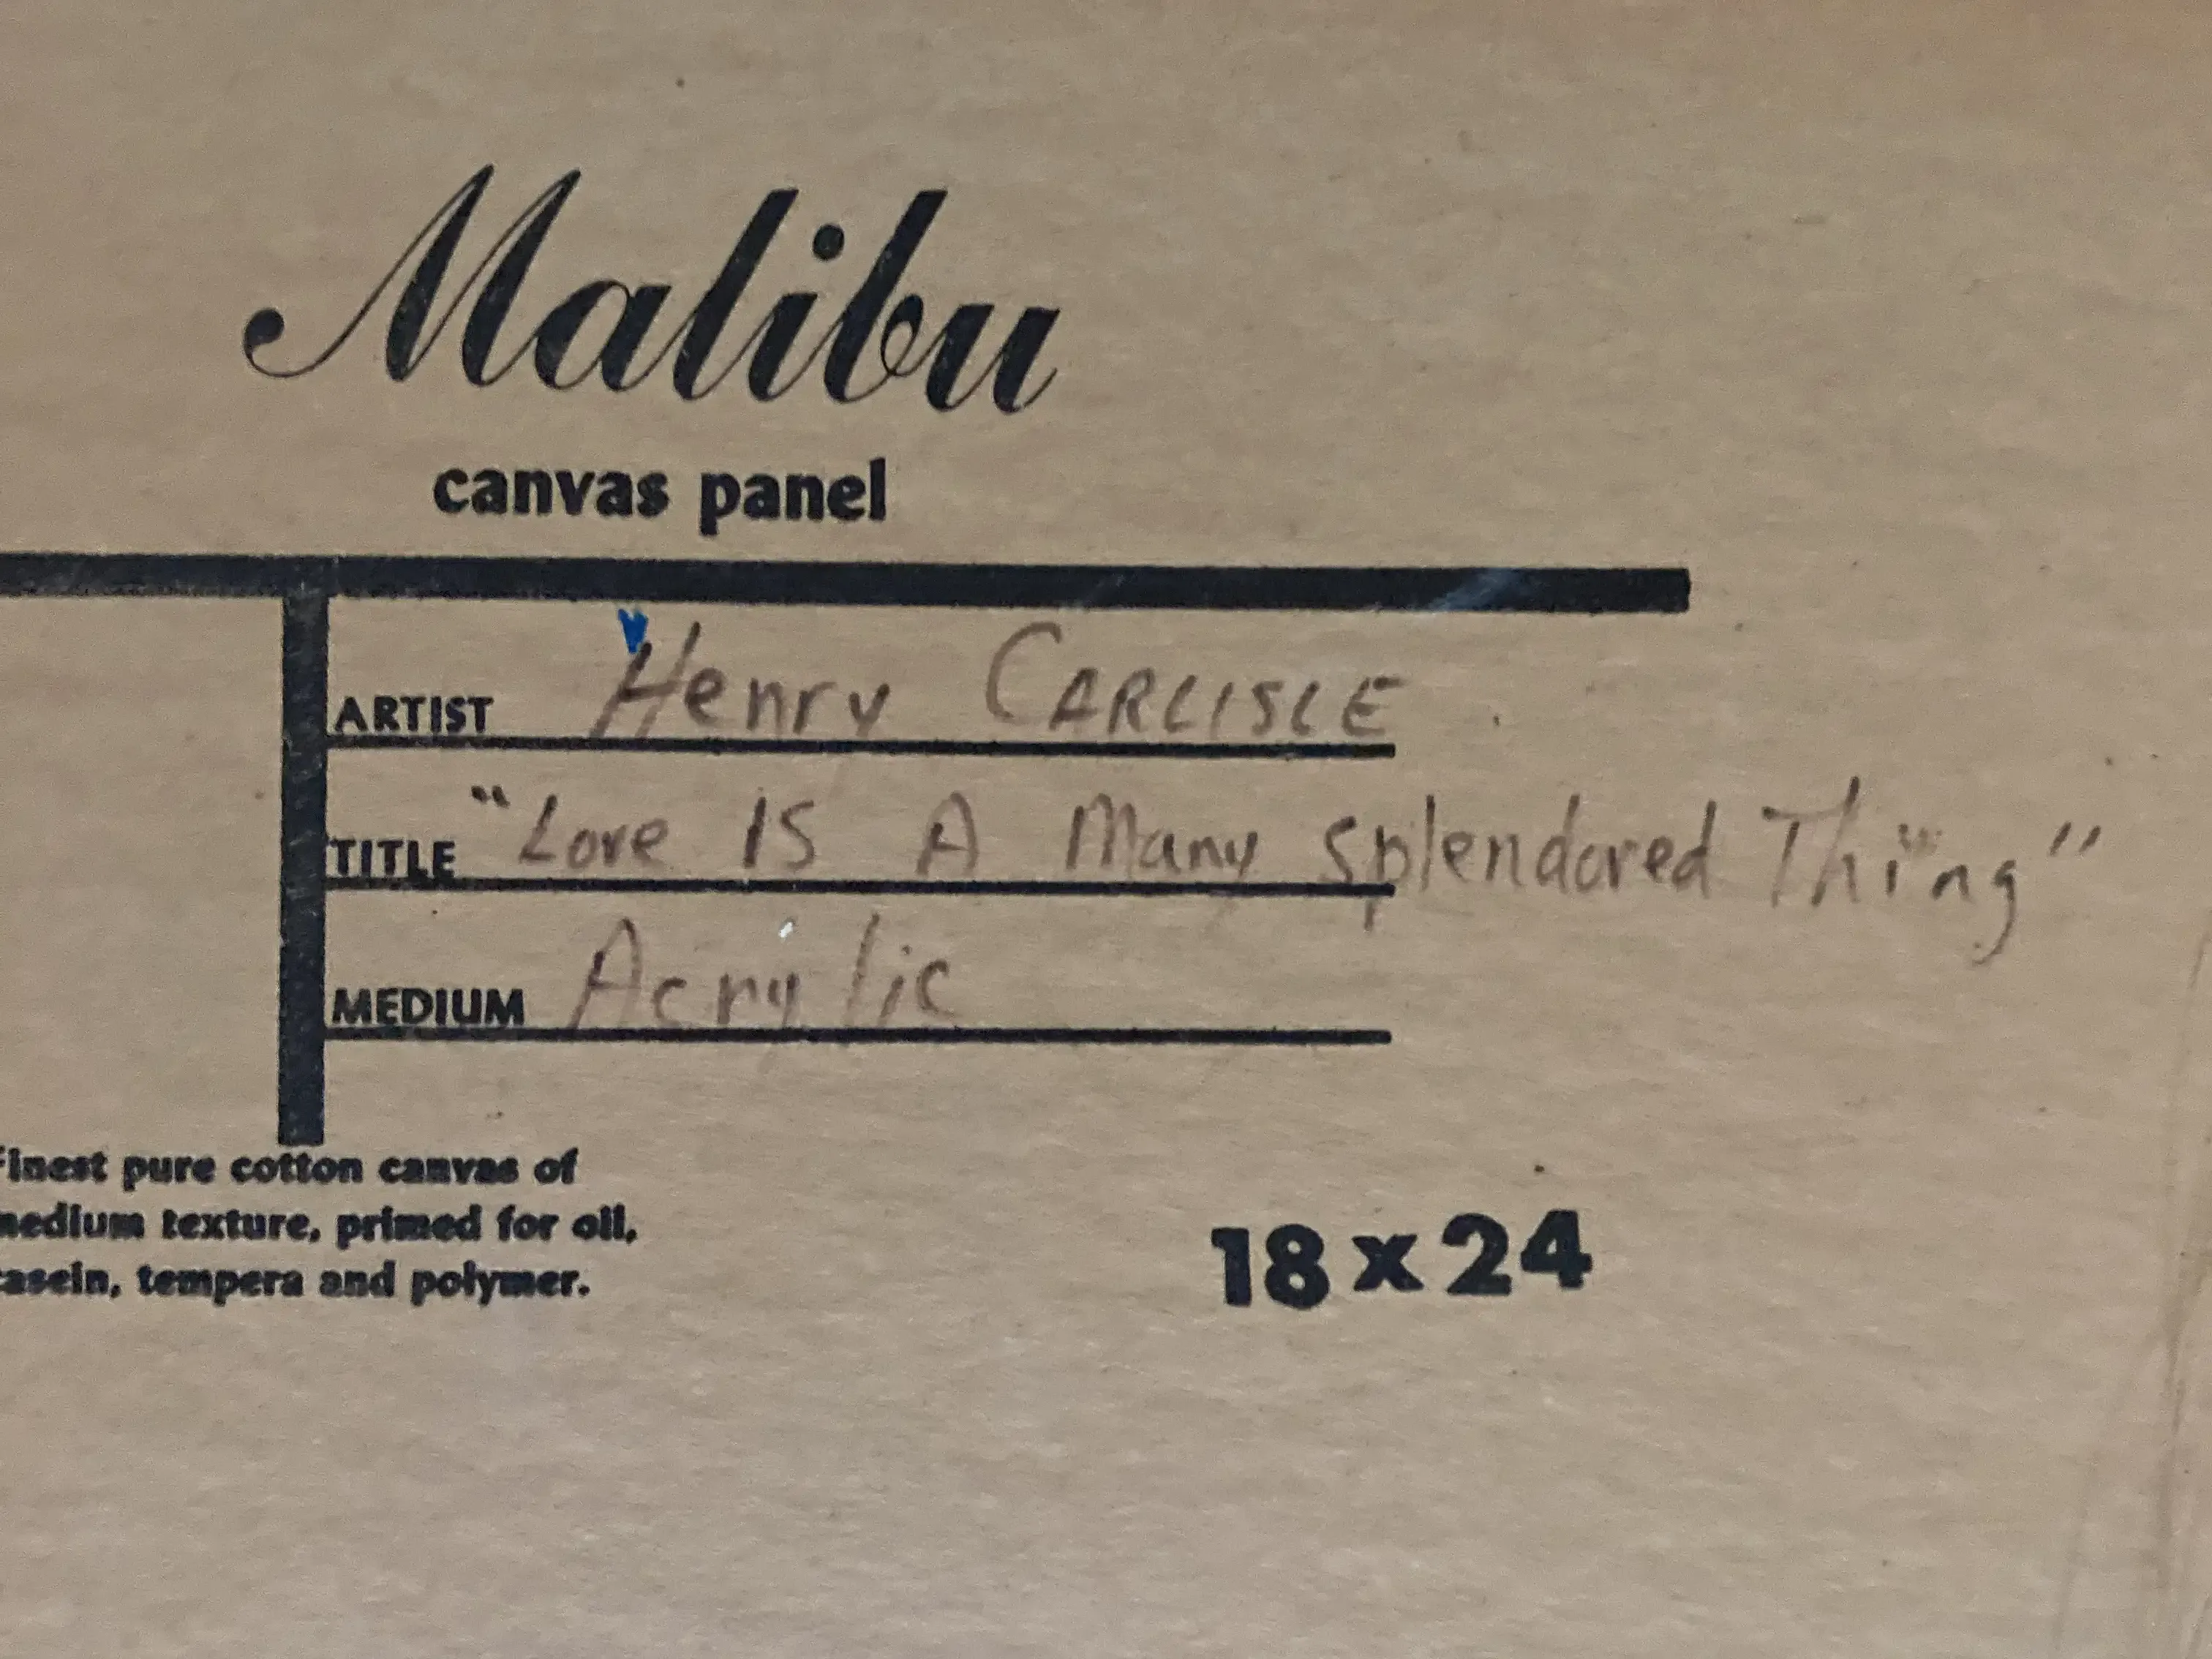 Malibu
canvas panel
ARTIST Henry CARLISLE
TITLE "Love IS A Many Splendored Thing"
MEDIUM Acrylic
Finest pure cotton canvas of
medium texture, primed for oil,
casein, tempera and polymer.
18 x 24